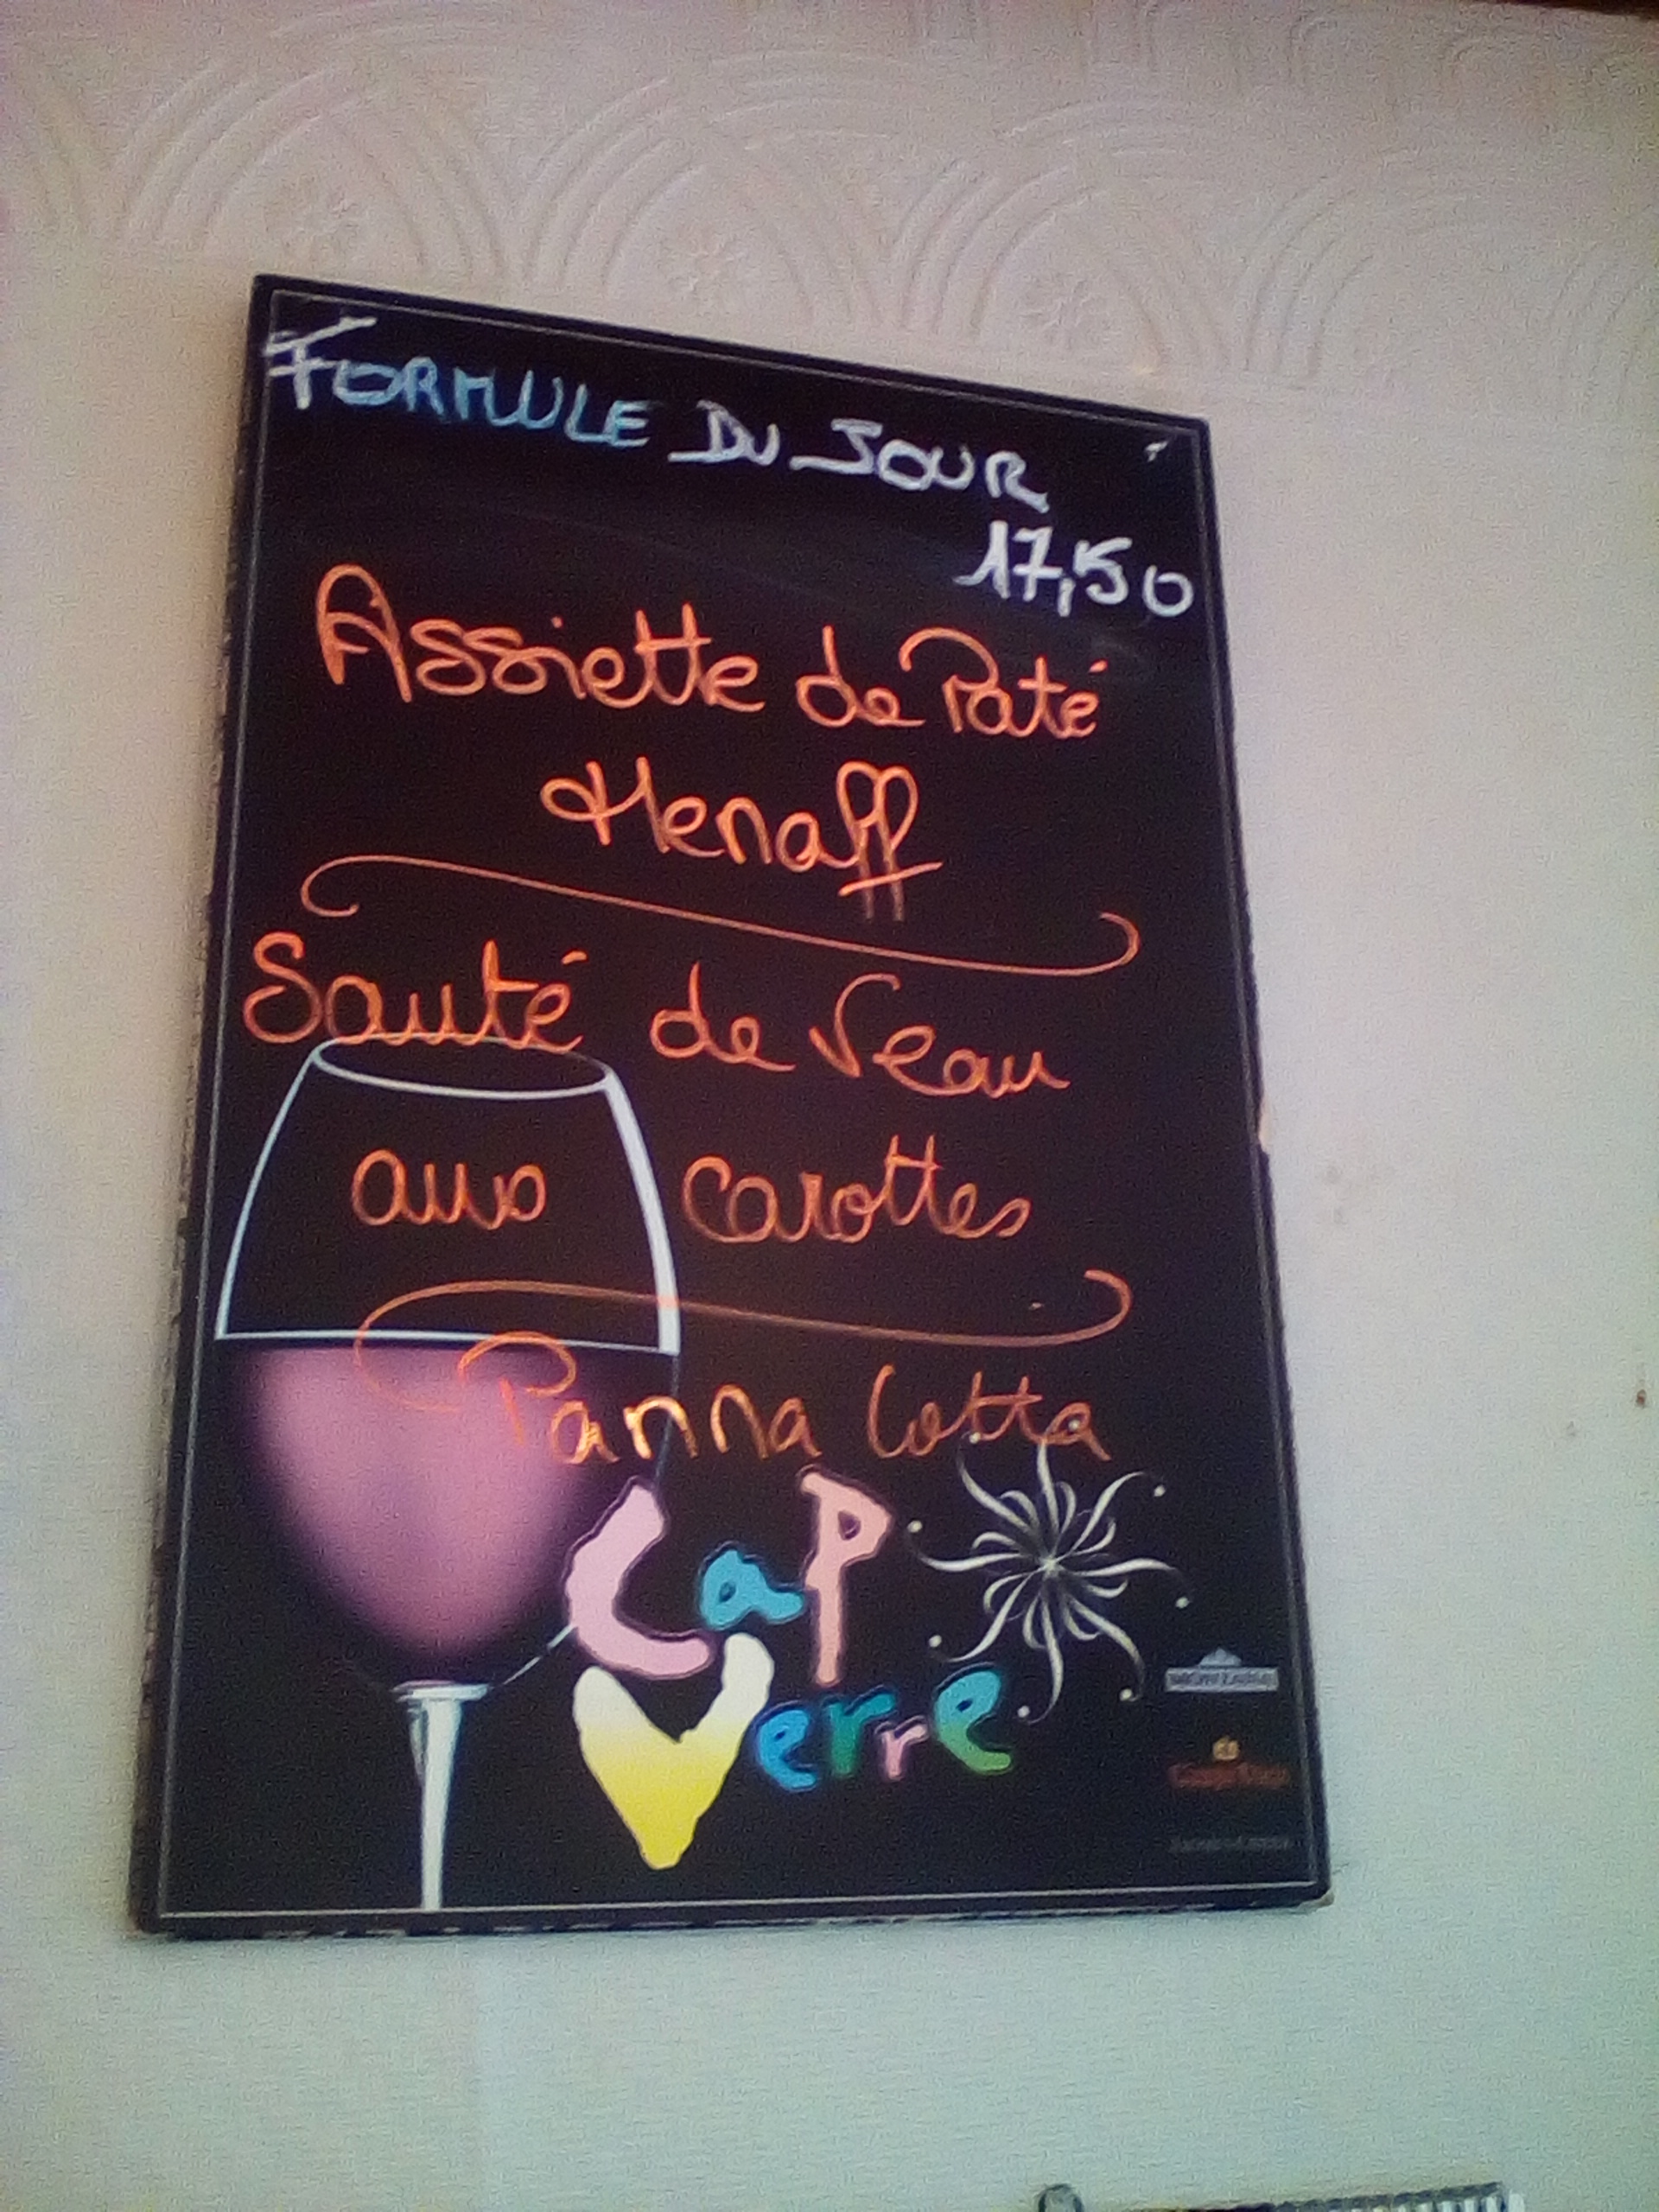 FORMULE DU JOUR
17,50
Assiette de Paté
Henaff
Sauté de Veau
aux carottes
Panna Cotta
CaP
Verre